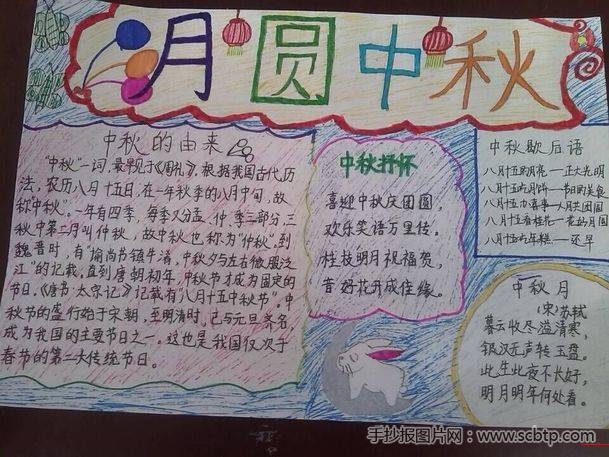 月圆中秋
中秋的由来
"中秋"一词,最早见于《周礼》,根据我国古代历
法,农历八月十五日,在一年秋季的八月中旬,故
称"中秋"。一年有四季,每季又分孟、仲、季三部分,三
秋中第二月叫仲秋,故中秋也称为"仲秋",到
魏晋时,有"谕尚书镇牛渚,中秋夕与左右微服泛
江"的记载,直到唐朝初年,中秋节才成为固定的
节日。《唐书·太宗记》记载有"八月十五中秋节"。中
秋节的盛行始于宋朝,至明清时,已与元旦齐名,
成为我国的主要节日之一。这也是我国仅次于
春节的第二大传统节日。
中秋抒怀
喜迎中秋庆团圆,
欢乐笑语万里传。
桂枝明月祝福贺,
昔好花开成佳缘。
中秋歇后语
八月十五的月亮——正大光明
八月十五的月饼——节日的美食
八月十五办喜事——人月共团圆
八月十五看桂花——花好月圆
八月十五吃年糕——还早
中秋月
(宋)苏轼
暮云收尽溢清寒,
银汉无声转玉盘。
此生此夜不长好,
明月明年何处看。
手抄报图片网:www.scbtp.com